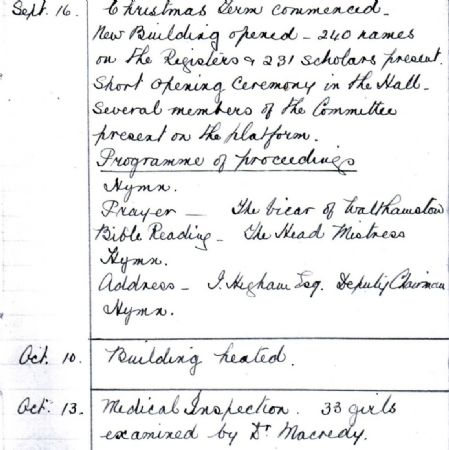 Sept. 16. Christmas Term commenced.
New Building opened - 240 names
on the Registers & 231 scholars present.
Short opening ceremony in the Hall.
Several members of the Committee
present on the platform.
Programme of proceedings
Hymn.
Prayer - The Vicar of Walthamstow
Bible Reading - The Head Mistress
Hymn.
Address - J. Higham Esq. Deputy Chairman
Hymn.
Oct. 10. Building heated.
Oct. 13. Medical Inspection. 33 girls
examined by Dr Macredy.